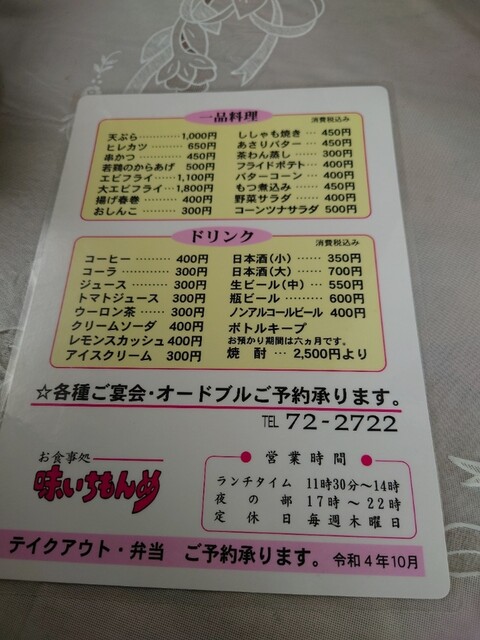 一品料理
消費税込み
天ぷら………1,000円
ヒレカツ……… 650円
串かつ……… 450円
若鶏のからあげ 500円
エビフライ…1,100円
大エビフライ…1,800円
揚げ春巻……… 400円
おしんこ……… 300円
ししゃも焼き… 450円
あさりバター… 450円
茶わん蒸し… 300円
フライドポテト… 400円
バターコーン… 400円
もつ煮込み… 450円
野菜サラダ… 400円
コーンツナサラダ 500円
ドリンク
消費税込み
コーヒー……… 400円
コーラ……… 300円
ジュース……… 300円
トマトジュース 300円
ウーロン茶…… 300円
クリームソーダ 400円
レモンスカッシュ 400円
アイスクリーム 300円
日本酒(小)… 350円
日本酒(大)… 700円
生ビール(中)… 550円
瓶ビール……… 600円
ノンアルコールビール 400円
ボトルキープ
お預かり期間は六ヵ月です。
焼 酎… 2,500円より
☆各種ご宴会・オードブルご予約承ります。
TEL 72-2722
お食事処
味いちもんめ
営業時間
ランチタイム 11時30分〜14時
夜の部 17時〜22時
定休日 毎週木曜日
テイクアウト・弁当 ご予約承ります。 令和4年10月